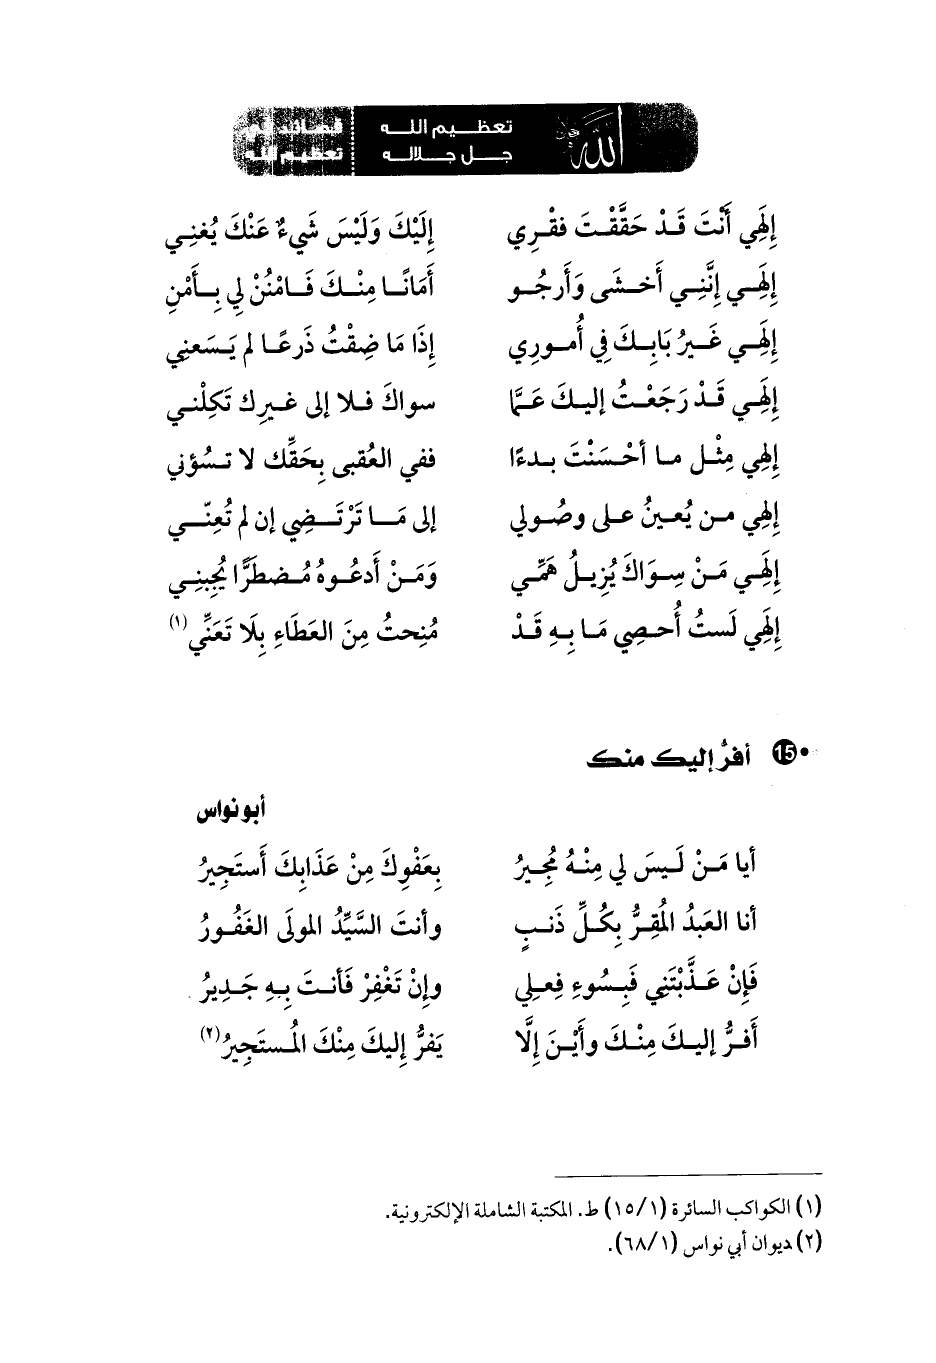 الله تعظيم الله قصائد في
جل جلاله تعظيم الله
إِلَهِي أَنْتَ قَدْ حَقَّقْتَ فقْرِي إِلَيْكَ وَلَيْسَ شَيءٌ عَنْكَ يُغنِي
إِلَهِي إِنَّنِي أَخشَى وَأَرجُو أَمَانًا مِنْكَ فَامْنُنْ لِي بِأَمْنِ
إِلَهِي غَيرُ بَابِكَ فِي أُمورِي إِذَا مَا ضِقْتُ ذَرعًا لم يَسَعنِي
إِلَهِي قَدْ رَجَعْتُ إليكَ عَمَّا سواكَ فلا إلى غيرِك تَكِلْني
إِلَهِي مِثْل ما أحْسَنْتَ بدءًا ففي العُقبى بِحَقِّك لا تسُؤني
إِلَهِي من يُعينُ على وصُولي إلى مَا تَرْتَضِي إن لم تُعِنّي
إِلَهِي مَنْ سِوَاكَ يُزِيلُ هَمِّي وَمَنْ أَدعُوهُ مُضطَرًّا يُجِبنِي
إِلَهِي لَستُ أُحصِي مَا بِهِ قَدْ مُنِحتُ مِنَ العَطَاءِ بِلَا تَعَنِّي (١)
15 أفرُّ إليك منك
أبو نواس
أيا مَنْ لَيسَ لي مِنْهُ مُجِيرُ بِعَفْوِكَ مِنْ عَذَابِكَ أَستَجِيرُ
أنا العَبدُ المُقِرُّ بِكُلِّ ذَنبٍ وأنتَ السَّيِّدُ المولَى الغَفُورُ
فَإِنْ عَذَّبْتَنِي فَبِسُوءِ فِعلِي وإِنْ تَغْفِرْ فَأَنتَ بِهِ جَدِيرُ
أَفرُّ إليكَ مِنْكَ وأَيْنَ إِلَّا يَفرُّ إِليكَ مِنْكَ المُستَجِيرُ (٢)
(١) الكواكب السائرة (١/ ١٥) ط. المكتبة الشاملة الإلكترونية.
(٢) ديوان أبي نواس (١/ ٦٨).